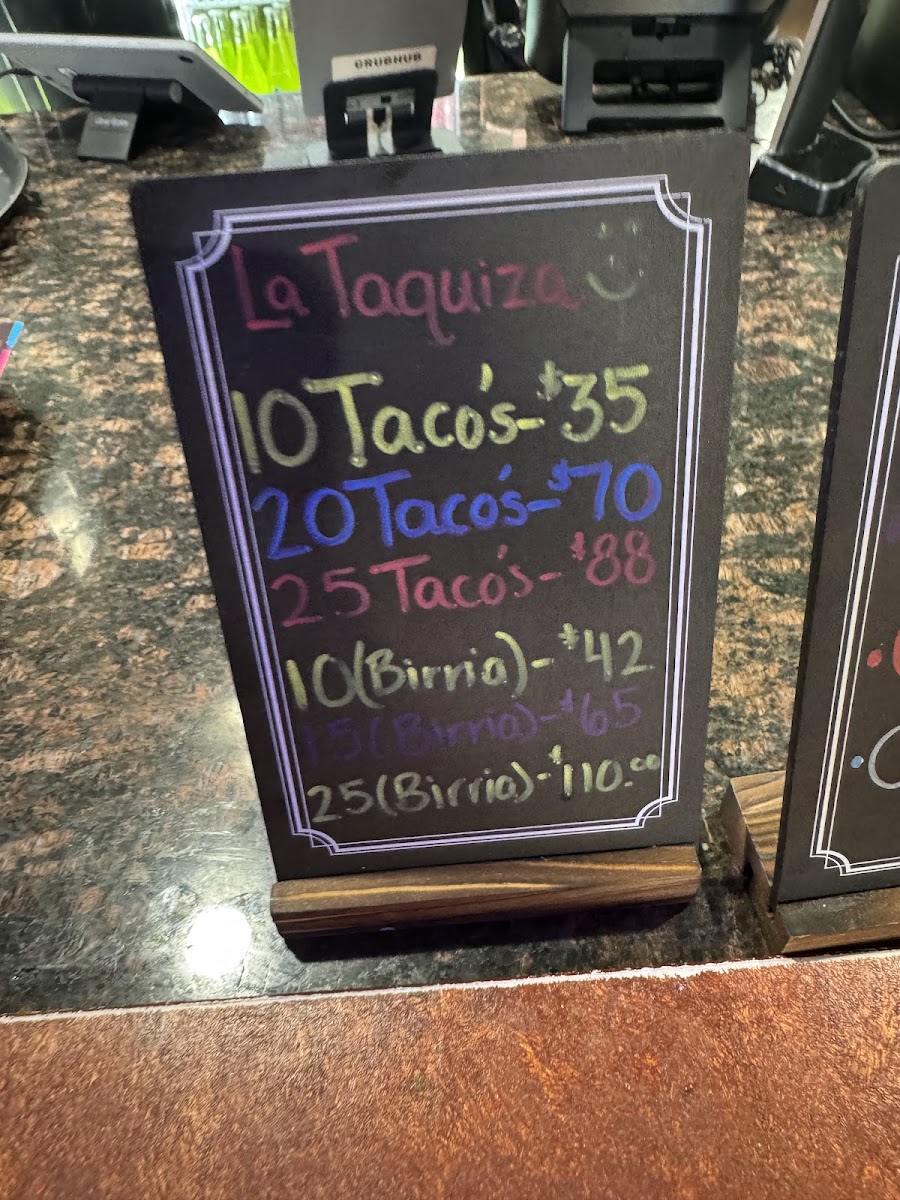 GRUBHUB
La Taquiza
10 Taco's - $35
20 Taco's - $70
25 Taco's - $88
10 (Birria) - $42
15 (Birria) - $65
25 (Birria) - $110.00